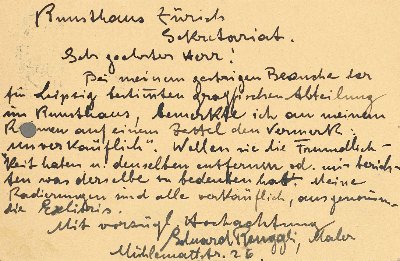 Kunsthaus Zürich
Sekretariat.
Sehr geehrter Herr!
Bei meinem gestrigen Besuche der
für Leipzig bestimmten grafischen Abteilung
im Kunsthaus, bemerkte ich an meinem
Rahmen auf einem Zettel den Vermerk:
"unverkäuflich". Wollen sie die Freundlich-
keit haben u. denselben entfernen od. mir berich-
ten was derselbe zu bedeuten hat. Meine
Radierungen sind alle verkäuflich, ausgenomm.
die Exlibris.
Mit vorzügl. Hochachtung
Eduard Renggli, Maler
Mühlemattstr. 26.